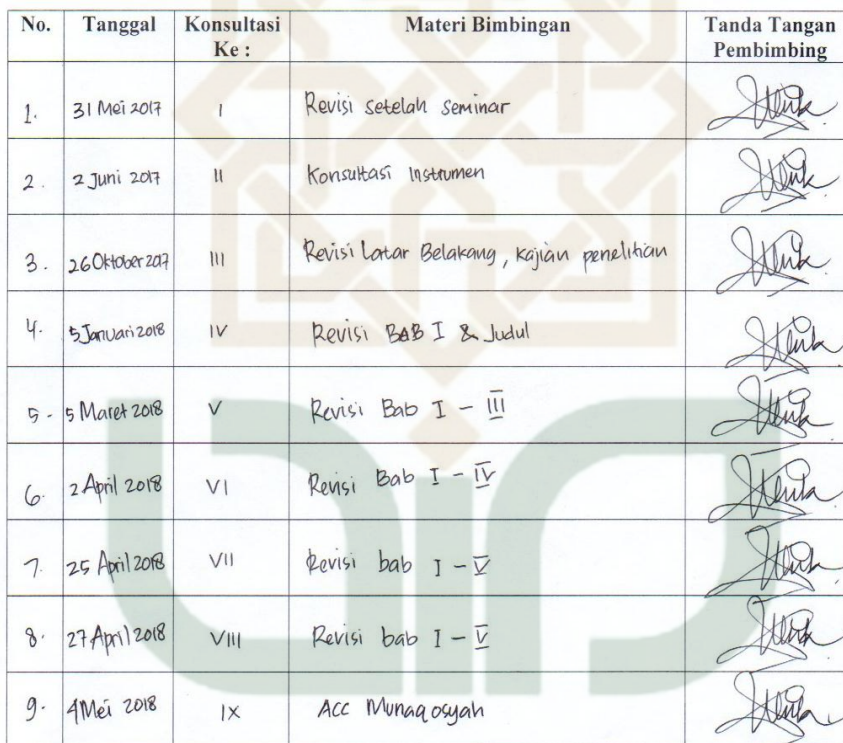 No. Tanggal Konsultasi Ke : Materi Bimbingan Tanda Tangan Pembimbing
1. 31 Mei 2017 I Revisi setelah seminar
2. 2 Juni 2017 II Konsultasi Instrumen
3. 26 Oktober 2017 III Revisi Latar Belakang, kajian penelitian
4. 5 Januari 2018 IV Revisi BAB I & Judul
5. 5 Maret 2018 V Revisi Bab I - III
6. 2 April 2018 VI Revisi Bab I - IV
7. 25 April 2018 VII Revisi bab I - V
8. 27 April 2018 VIII Revisi bab I - V
9. 4 Mei 2018 IX Acc Munaqosyah